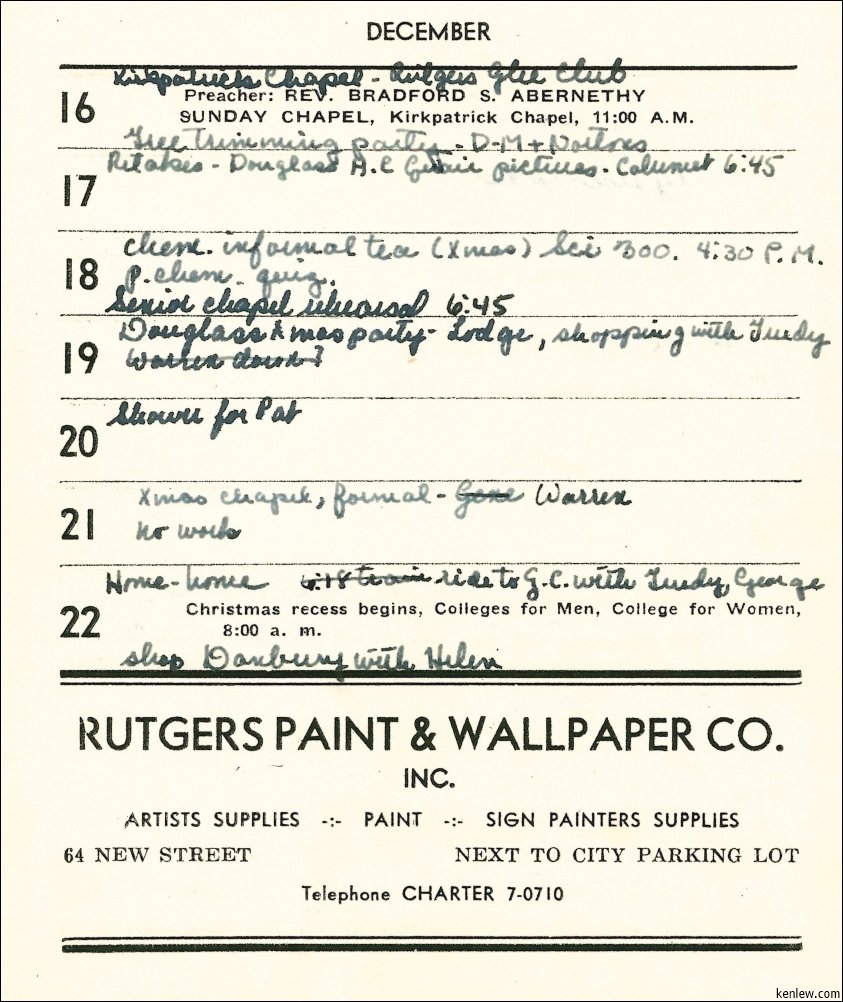 DECEMBER
Kirkpatrick Chapel - Rutgers Glee Club
16
Preacher: REV. BRADFORD S. ABERNETHY
SUNDAY CHAPEL, Kirkpatrick Chapel, 11:00 A.M.
Tree trimming party - D-M +
Retakes - Douglass A.C pictures - Calumet 6:45
17
chem. informal tea (Xmas) Sci 300. 4:30 P.M.
18
p. chem. quiz.
Senior chapel rehearsal 6:45
Douglass Xmas party - Lodge, shopping with Trudy
19
Warren down?
Shower for Pat
20
Xmas chapel, formal - Gene Warren
21
no work
Home-home 6:18 train ride to G.C. with Trudy, George
22
Christmas recess begins, Colleges for Men, College for Women,
8:00 a. m.
shop Danbury with Helen
RUTGERS PAINT & WALLPAPER CO.
INC.
ARTISTS SUPPLIES -:- PAINT -:- SIGN PAINTERS SUPPLIES
64 NEW STREET NEXT TO CITY PARKING LOT
Telephone CHARTER 7-0710
kenlew.com